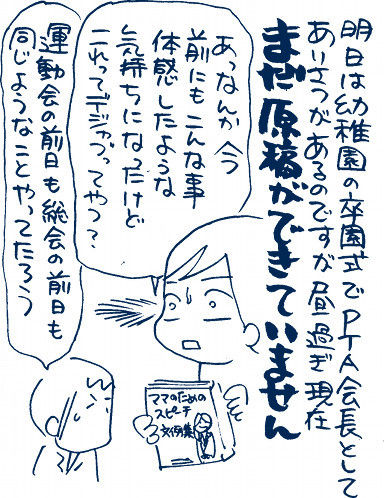 明日は幼稚園の卒園式でPTA会長として
あいさつがあるのですが昼過ぎ現在
まだ原稿ができていません
あっなんか今
前にもこんな事
体感したような
気持ちになったけど
これってデジャブってやつ?
運動会の前日も総会の前日も
同じようなことやってたろう
ママのための
スピーチ
文例集